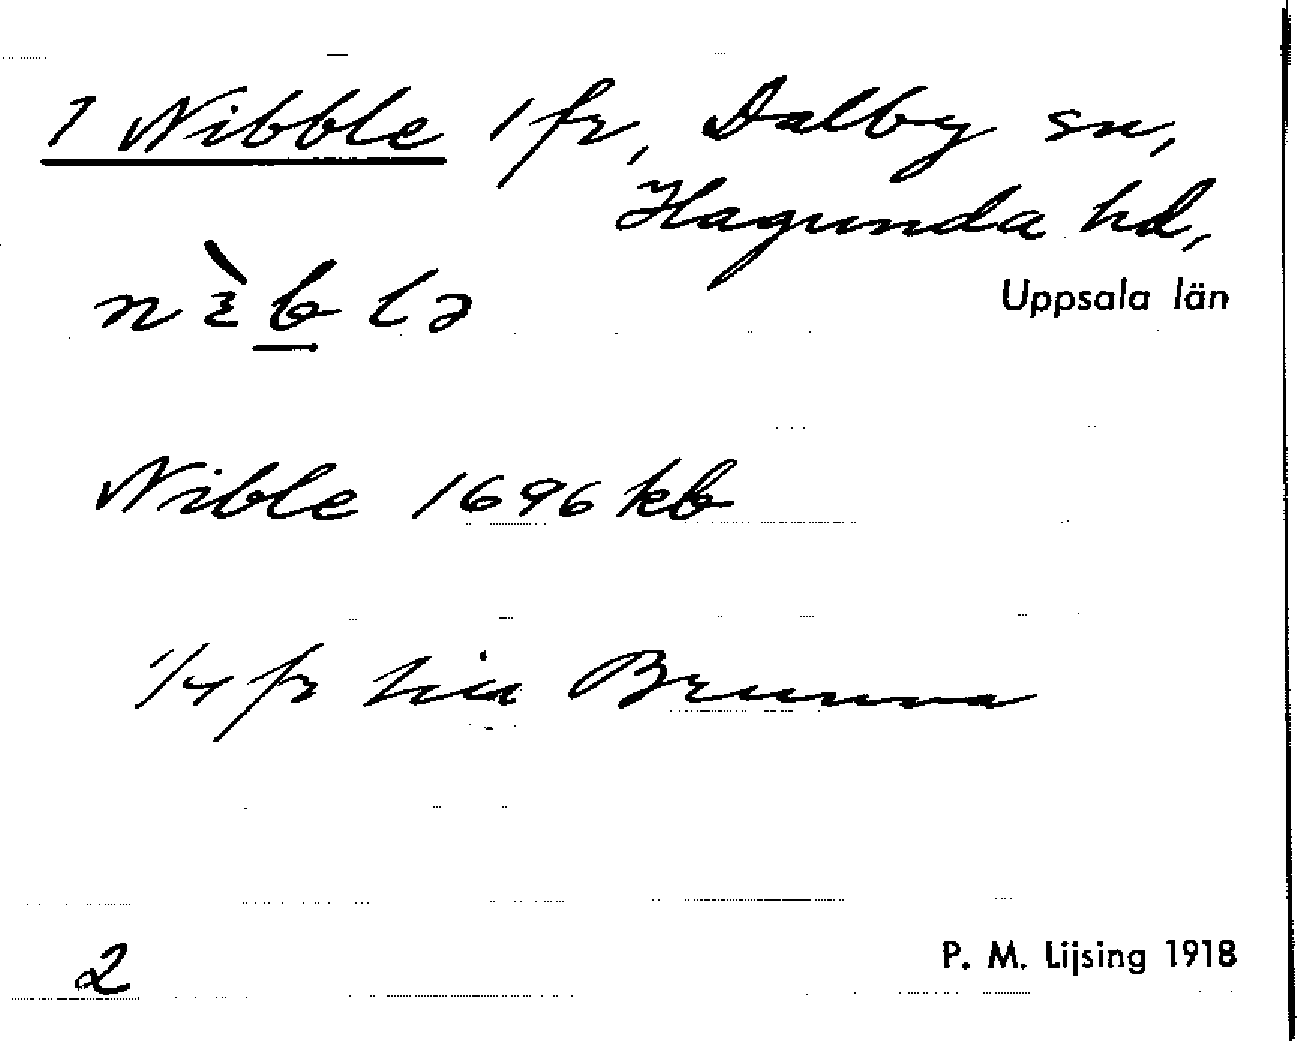 1 Nibble 1 fr, Dalby sn,
Hagunda hd,
Uppsala län
Nible 1696 kb
1/4 fr Brunna
2
P. M. Lijsing 1918